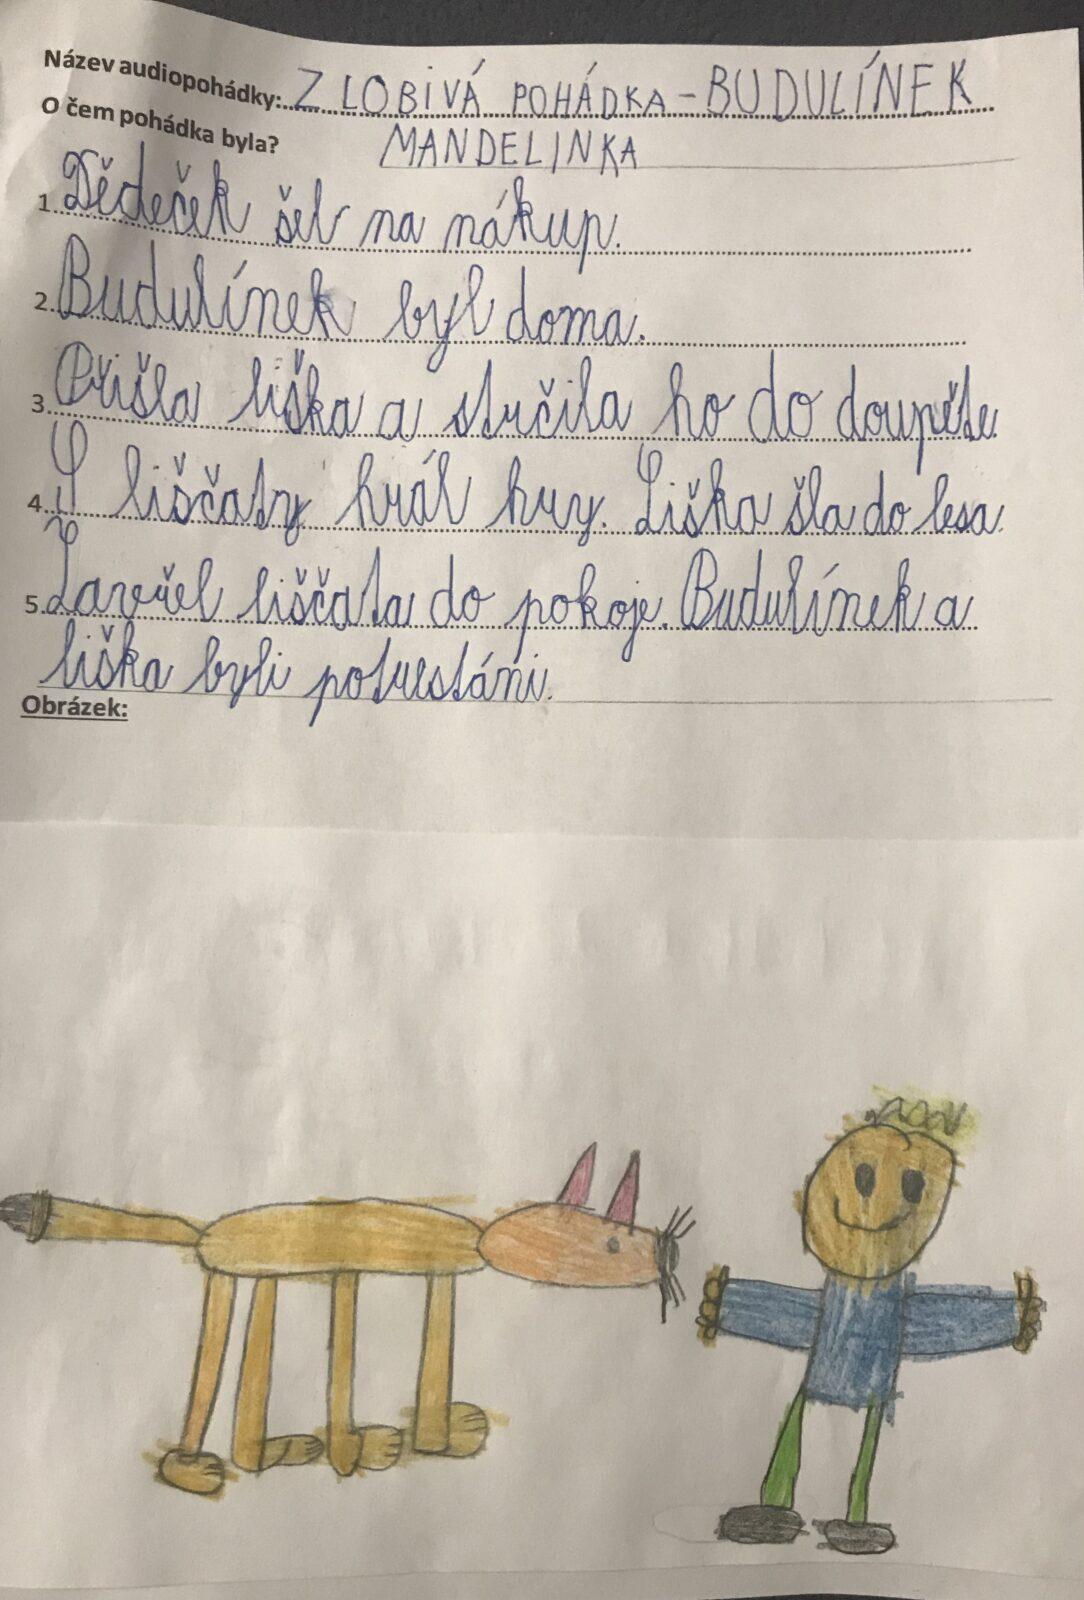 Název audiopohádky: ZLOBIVÁ POHÁDKA - BUDULÍNEK
O čem pohádka byla? MANDELINKA
1. Dědeček šel na nákup.
2. Budulínek byl doma.
3. Přišla liška a strčila ho do doupěte.
4. S liščaty hrál hry. Liška šla do lesa.
5. Zavřel liščata do pokoje. Budulínek a
liška byli potrestáni.
Obrázek: